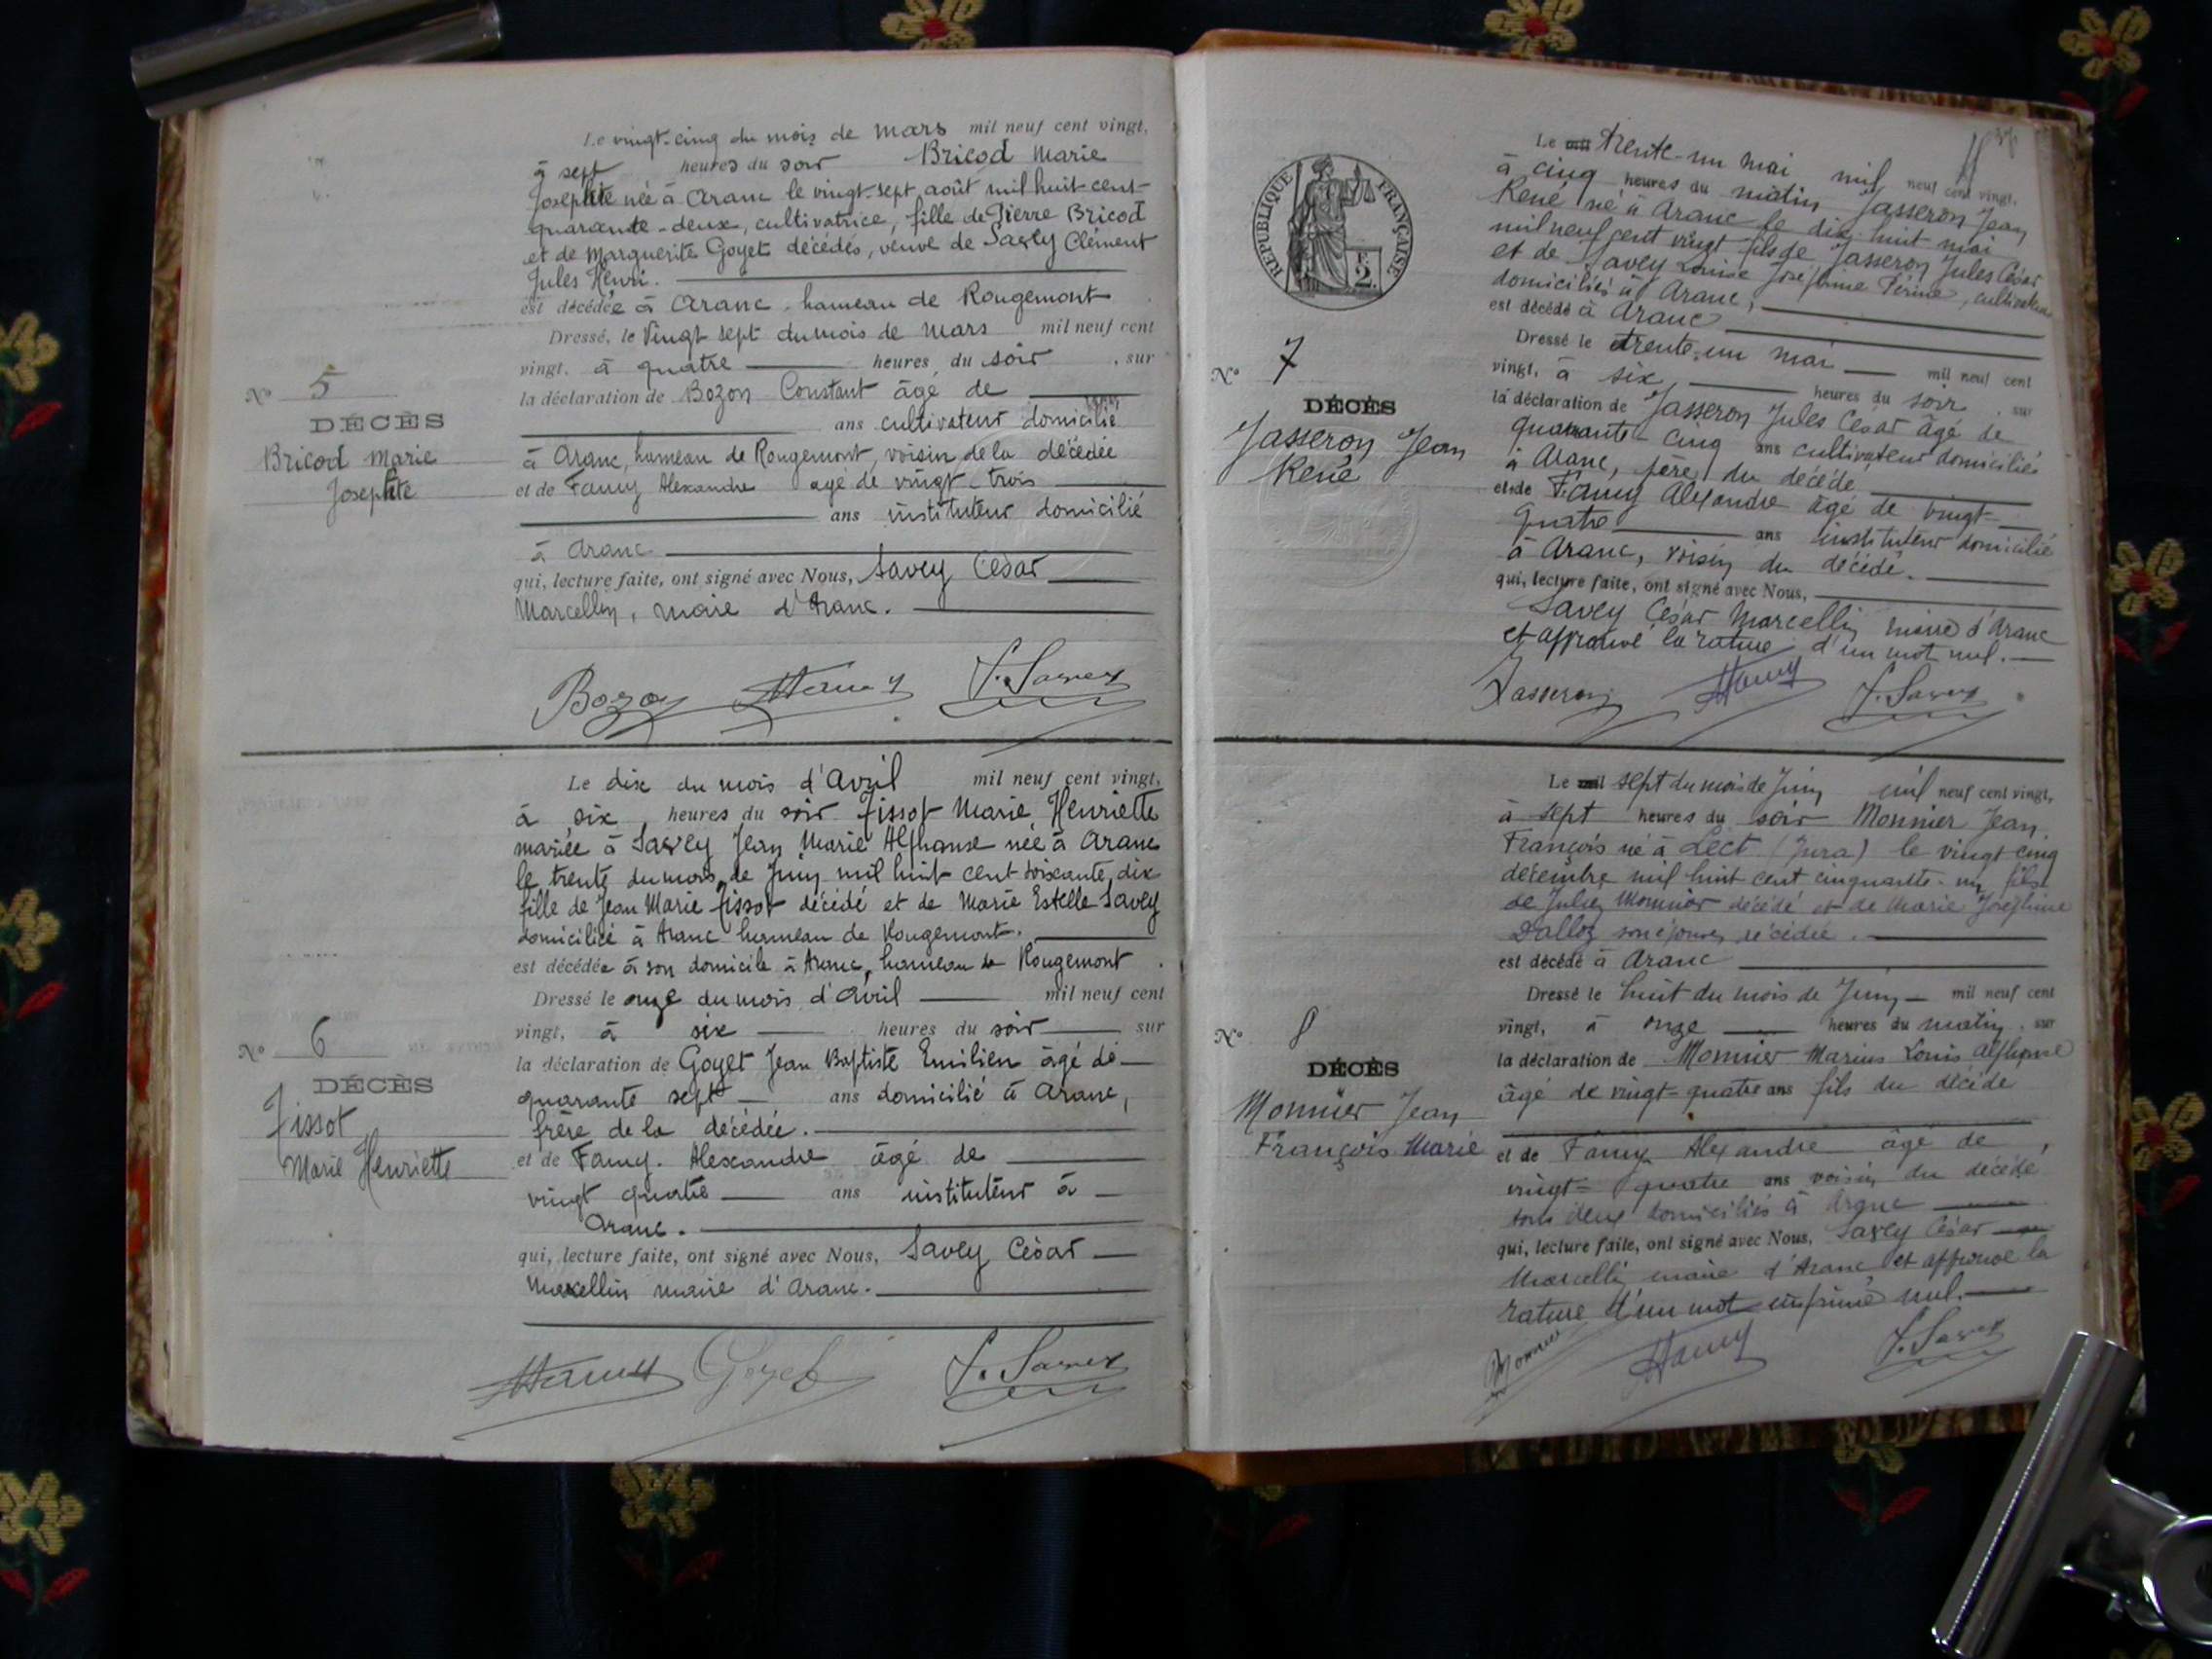 Le vingt-cinq du mois de mars mil neuf cent vingt,
à sept heures du soir Bricod Marie
Josephte née à Aranc le vingt-sept août mil huit cent-
quarante-deux, cultivatrice, fille de Pierre Bricod
et de Marguerite Goyet décédés, veuve de Savey Clément
Jules Henri.
est décédée à Aranc, hameau de Rougemont
Dressé, le Vingt sept du mois de mars mil neuf cent
vingt, à quatre heures du soir, sur
la déclaration de Bozon Constant âgé de
ans cultivateur domicilié
à Aranc, hameau de Rougemont, voisin de la décédée
et de Famy Alexandre agé de vingt-trois
ans instituteur domicilié
à Aranc
qui, lecture faite, ont signé avec Nous, Savey César
Marcellin, maire d'Aranc.
N° 5
DÉCÈS
Bricod Marie
Josephte
Bozon Famy J. Savey
Le dix du mois d'Avril mil neuf cent vingt,
à six heures du soir Tissot Marie Henriette
mariée à Savey Jean Marie Alphonse née à Aranc
le trente du mois de Juin mil huit cent soixante, dix
fille de Jean Marie Tissot décédé et de Marie Estelle Savey
domicilié à Aranc hameau de Rougemont.
est décédée à son domicile à Aranc, hameau de Rougemont.
Dressé le onze du mois d'Avril mil neuf cent
vingt, à six heures du soir sur
la déclaration de Goyet Jean Baptiste Emilien âgé de
quarante sept ans domicilié à Aranc,
frère de la décédée.
et de Famy. Alexandre âgé de
vingt quatre ans instituteur à
Aranc.
qui, lecture faite, ont signé avec Nous, Savey César
Marcellin maire d'Aranc.
N° 6
DÉCÈS
Tissot
Marie Henriette
Famy Goyet J. Savey
37
RÉPUBLIQUE FRANÇAISE
2
Le mil trente-un mai mil neuf cent vingt,
à cinq heures du matin Jasseron Jean
René né à Aranc le dix-huit mai
mil neuf cent vingt fils de Jasseron Jules César
et de Savey Louise Joséphine Périne, cultivateurs
domiciliés à Aranc,
est décédé à Aranc
Dressé le trente-un mai mil neuf cent
vingt, à six heures du soir, sur
la déclaration de Jasseron Jules César âgé de
quarante-cinq ans cultivateur domiciliés
à Aranc, père du décédé
et de Famy Alexandre âgé de vingt-
quatre ans instituteur domicilié
à Aranc, voisin du décédé.
qui, lecture faite, ont signé avec Nous,
Savey César Marcellin maire d'Aranc
et approuvé la rature d'un mot nul.
N° 7
DÉCÈS
Jasseron Jean
René
Jasseron Famy J. Savey
Le mil sept du mois de Juin mil neuf cent vingt,
à sept heures du soir Monnier Jean
François né à Lect (Jura) le vingt cinq
décembre mil huit cent cinquante-un fils
de Julien Monnier décédé et de Marie Joséphine
Dalloz son épouse, décédée.
est décédé à Aranc
Dressé le huit du mois de Juin mil neuf cent
vingt, à onze heures du matin, sur
la déclaration de Monnier Marius Louis Alphonse
âgé de vingt-quatre ans fils du décédé
et de Famy Alexandre âgé de
vingt-quatre ans voisin du décédé
tous deux domiciliés à Aranc
qui, lecture faite, ont signé avec Nous, Savey César
Marcellin maire d'Aranc et approuve la
rature d'un mot imprimé nul.
N° 8
DÉCÈS
Monnier Jean
François Marie
Monnier Famy J. Savey